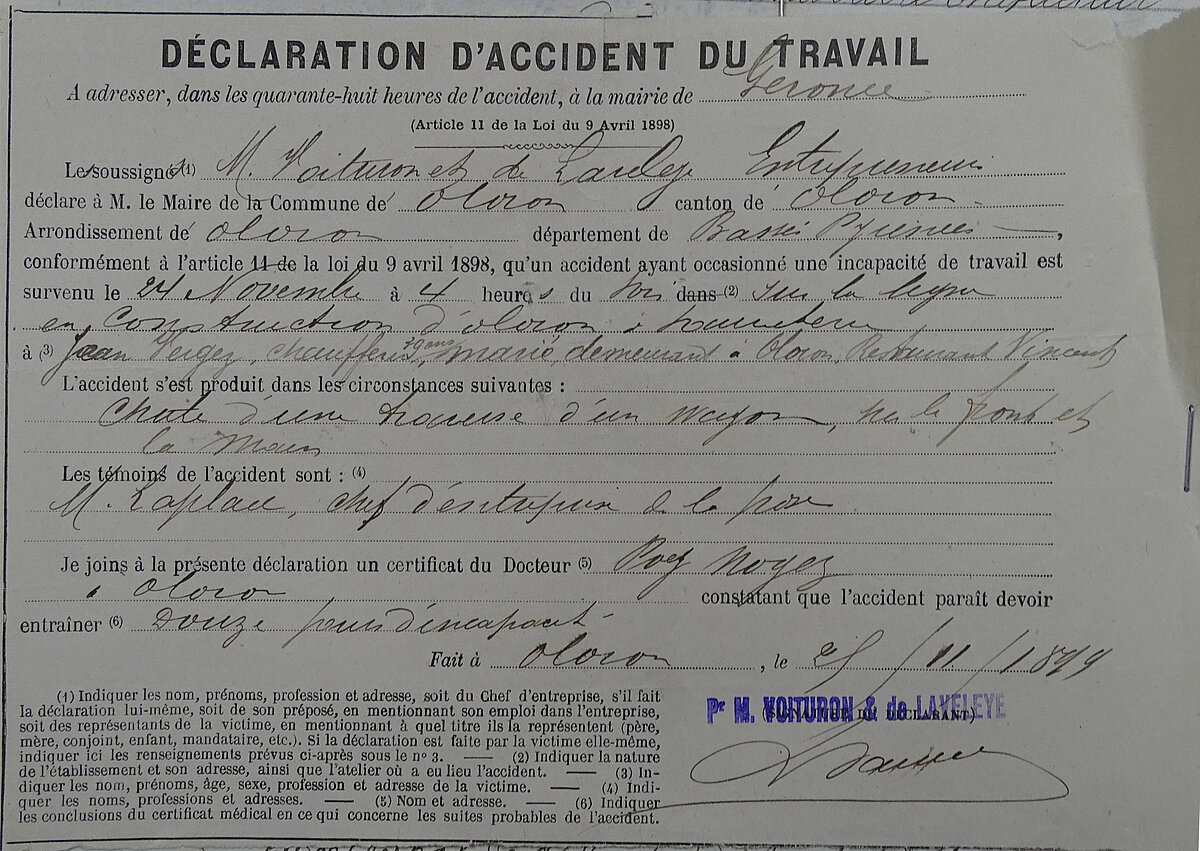 DÉCLARATION D'ACCIDENT DU TRAVAIL
A adresser, dans les quarante-huit heures de l'accident, à la mairie de Geronce
(Article 11 de la Loi du 9 Avril 1898)
Le soussigné (1) M. Voituron et de Laveleye Entrepreneurs
déclare à M. le Maire de la Commune de Oloron canton de Oloron
Arrondissement de Oloron département de Basses Pyrénées,
conformément à l'article 11 de la loi du 9 avril 1898, qu'un accident ayant occasionné une incapacité de travail est
survenu le 24 Novembre à 4 heures du soir dans (2) sur la ligne
en construction d'oloron à
à (3) Jean Vergez, chauffeur, marié, demeurant à Oloron, Restaurant Vincent
L'accident s'est produit dans les circonstances suivantes :
Chute d'une traverse d'un wagon, sur le front et
la main
Les témoins de l'accident sont : (4)
M. Laplace, chef d'entreprise de la pose
Je joins à la présente déclaration un certificat du Docteur (5) Poey Noguez
à Oloron constatant que l'accident paraît devoir
entraîner (6) Douze jours d'incapacité
Fait à Oloron, le 25/11/1899
(1) Indiquer les nom, prénoms, profession et adresse, soit du Chef d'entreprise, s'il fait
la déclaration lui-même, soit de son préposé, en mentionnant son emploi dans l'entreprise,
soit des représentants de la victime, en mentionnant à quel titre ils la représentent (père,
mère, conjoint, enfant, mandataire, etc.). Si la déclaration est faite par la victime elle-même,
indiquer ici les renseignements prévus ci-après sous le nº 3. — (2) Indiquer la nature
de l'établissement et son adresse, ainsi que l'atelier où a eu lieu l'accident. — (3) In-
diquer les nom, prénoms, âge, sexe, profession et adresse de la victime. — (4) Indi-
quer les noms, professions et adresses. — (5) Nom et adresse. — (6) Indiquer
les conclusions du certificat médical en ce qui concerne les suites probables de l'accident.
Pr M. VOITURON & de LAVELEYE
(SIGNATURE DU DÉCLARANT)